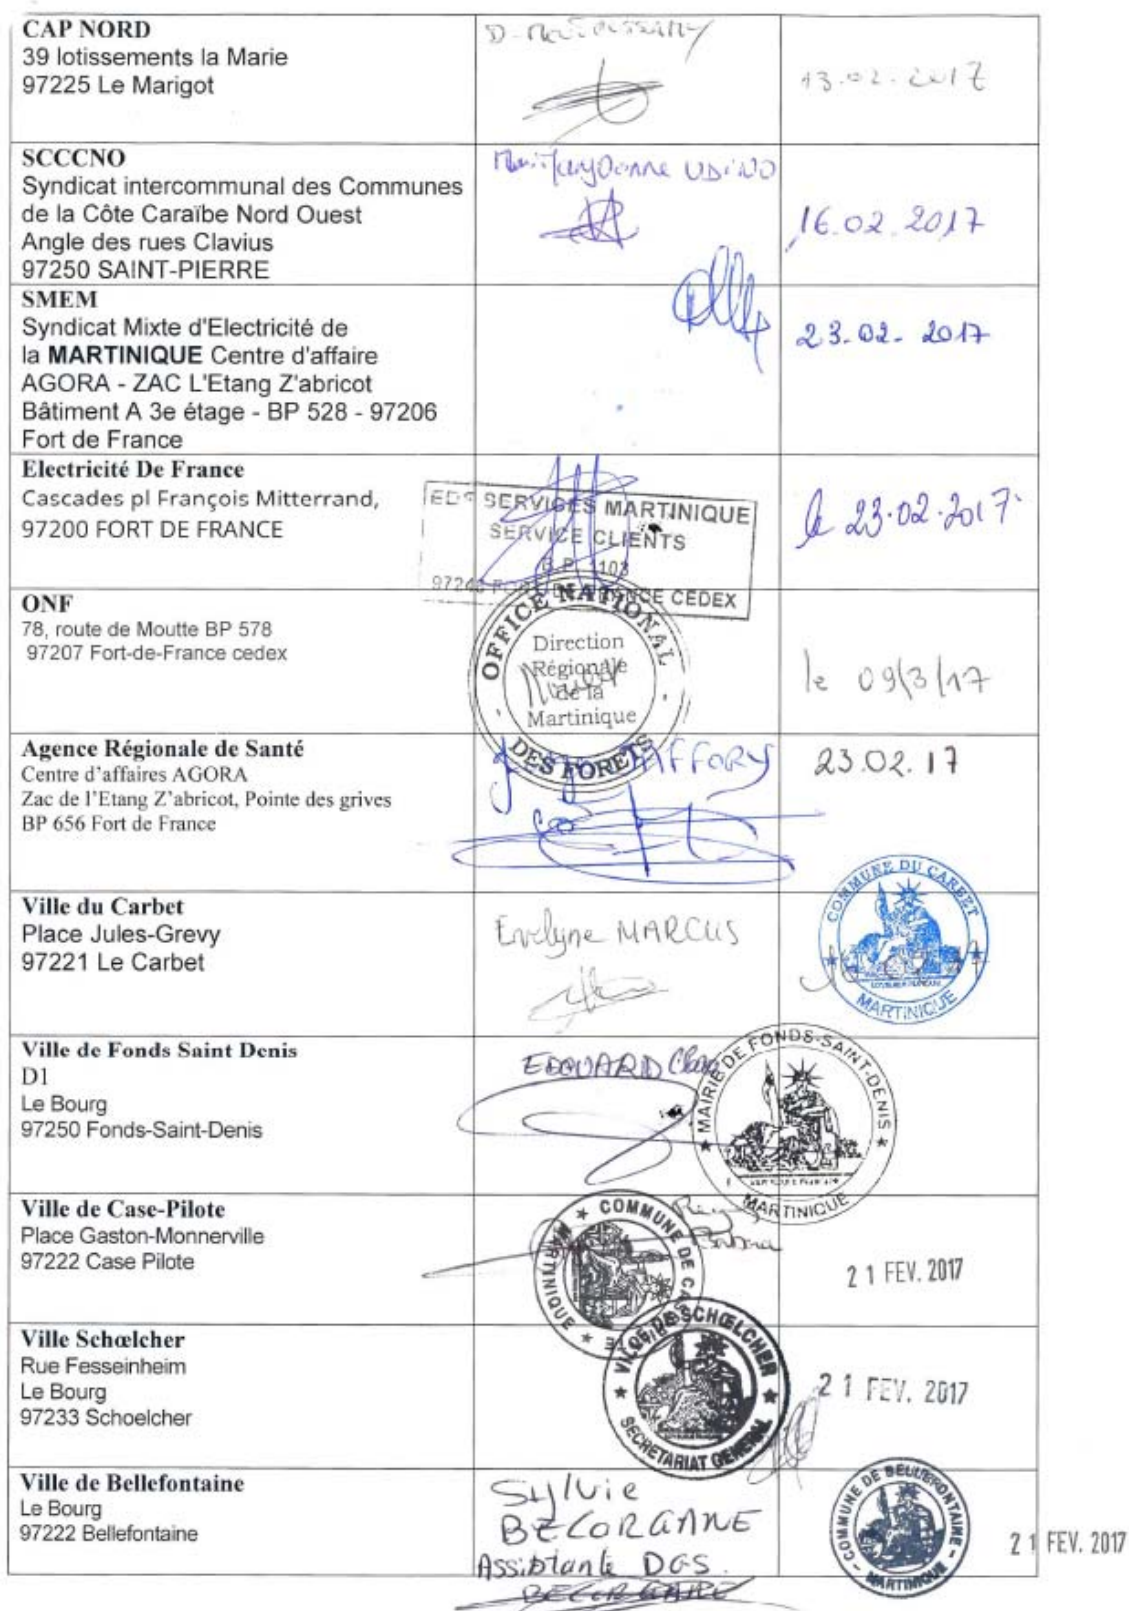 CAP NORD
39 lotissements la Marie
97225 Le Marigot
13.02.2017
SCCCNO
Syndicat intercommunal des Communes
de la Côte Caraïbe Nord Ouest
Angle des rues Clavius
97250 SAINT-PIERRE
UDINO
16.02.2017
SMEM
Syndicat Mixte d'Electricité de
la MARTINIQUE Centre d'affaire
AGORA - ZAC L'Etang Z'abricot
Bâtiment A 3e étage - BP 528 - 97206
Fort de France
23.02.2017
Electricité De France
Cascades pl François Mitterrand,
97200 FORT DE FRANCE
SERVICES MARTINIQUE
SERVICE CLIENTS
B.P. 1103
FORT DE FRANCE CEDEX
le 23.02.2017
ONF
78, route de Moutte BP 578
97207 Fort-de-France cedex
OFFICE NATIONAL
DES FORETS
Direction
Régionale
de la
Martinique
le 09/3/17
Agence Régionale de Santé
Centre d'affaires AGORA
Zac de l'Etang Z'abricot, Pointe des grives
BP 656 Fort de France
23.02.17
Ville du Carbet
Place Jules-Grevy
97221 Le Carbet
Evelyne MARCUS
COMMUNE DU CARBET
MARTINIQUE
Ville de Fonds Saint Denis
D1
Le Bourg
97250 Fonds-Saint-Denis
EDOUARD
MAIRIE DE FONDS-SAINT-DENIS
MARTINIQUE
Ville de Case-Pilote
Place Gaston-Monnerville
97222 Case Pilote
COMMUNE DE
MARTINIQUE
21 FEV. 2017
Ville Schœlcher
Rue Fesseinheim
Le Bourg
97233 Schoelcher
VILLE DE SCHŒLCHER
SECRETARIAT GENERAL
21 FEV. 2017
Ville de Bellefontaine
Le Bourg
97222 Bellefontaine
Sylvie
BECORGANNE
Assistante DGS
COMMUNE DE BELLEFONTAINE
MARTINIQUE
21 FEV. 2017